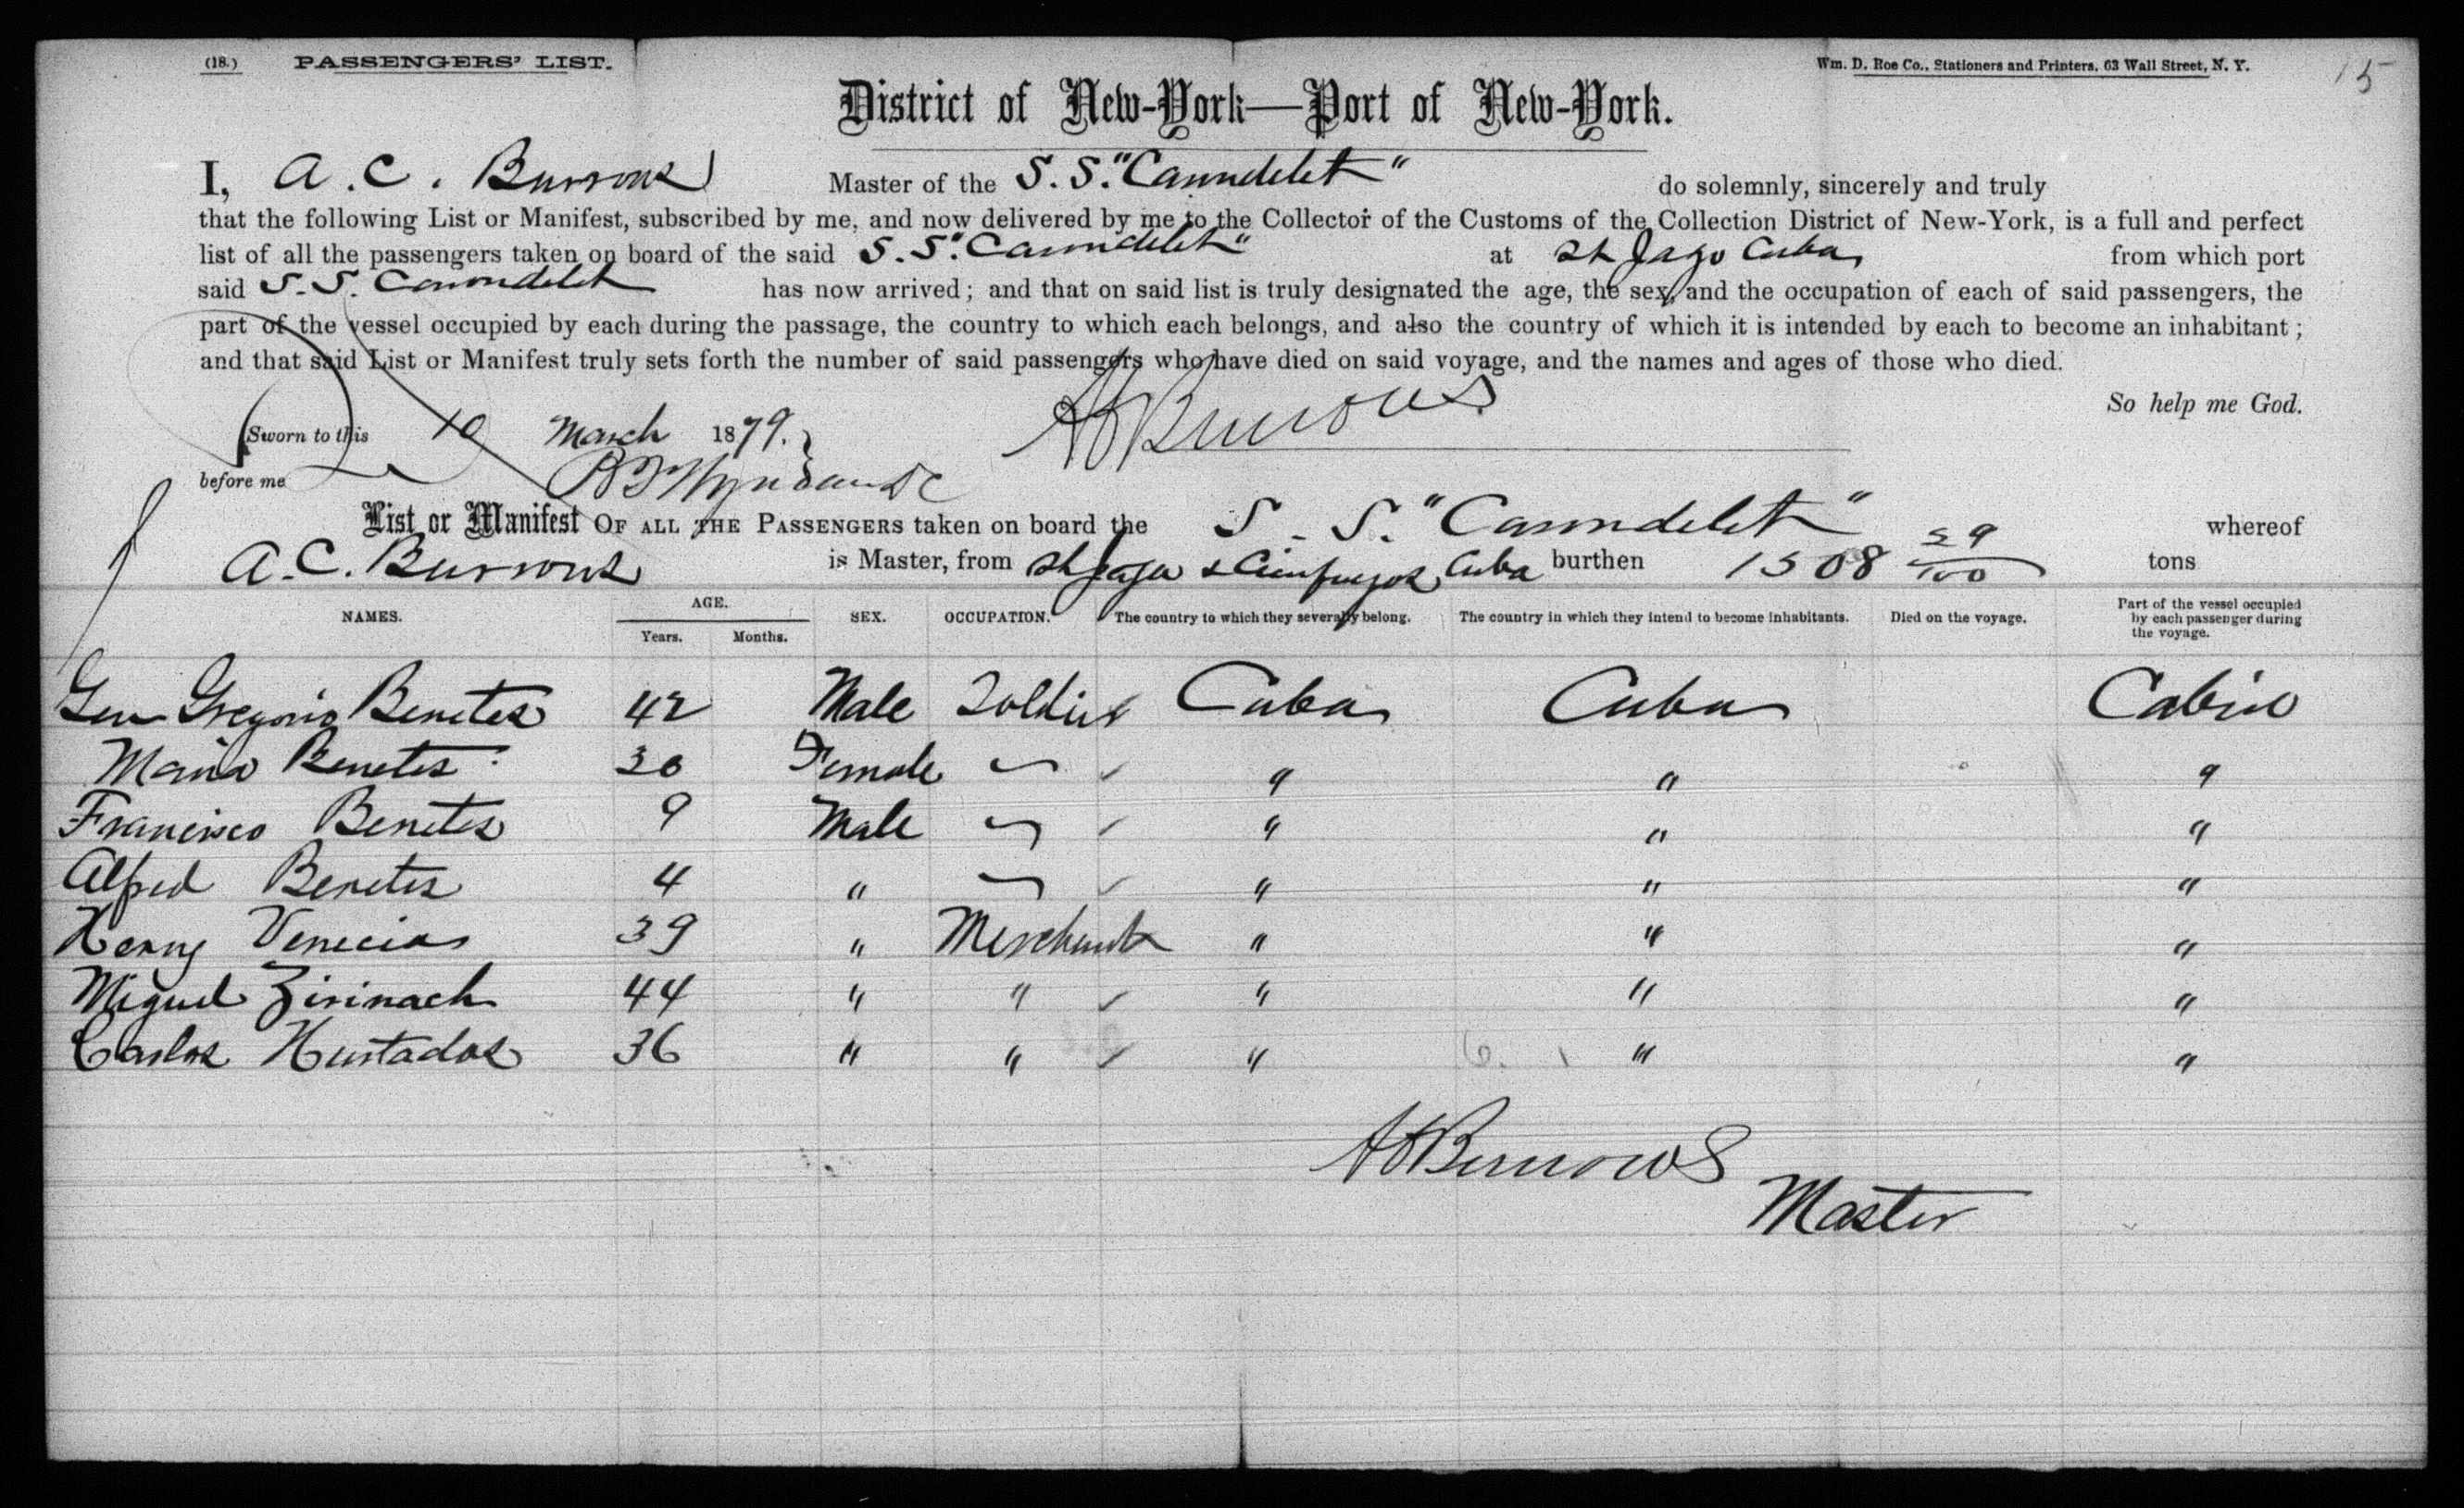 (18.) PASSENGERS' LIST. Wm. D. Roe Co., Stationers and Printers, 63 Wall Street, N. Y. 15
District of New-York—Port of New-York.
I, A. C. Burrows Master of the S. S. "Carondelet" do solemnly, sincerely and truly
that the following List or Manifest, subscribed by me, and now delivered by me to the Collector of the Customs of the Collection District of New-York, is a full and perfect
list of all the passengers taken on board of the said S. S. "Carondelet" at St Jago Cuba from which port
said S. S. Carondelet has now arrived; and that on said list is truly designated the age, the sex, and the occupation of each of said passengers, the
part of the vessel occupied by each during the passage, the country to which each belongs, and also the country of which it is intended by each to become an inhabitant;
and that said List or Manifest truly sets forth the number of said passengers who have died on said voyage, and the names and ages of those who died.
So help me God.
Sworn to this 10 March 1879. A C Burrows
before me
List or Manifest OF ALL THE PASSENGERS taken on board the S. S. "Carondelet" whereof
A. C. Burrows is Master, from St Jago & Cienfuegos Cuba burthen 1508 59/100 tons
NAMES. AGE. Years. Months. SEX. OCCUPATION. The country to which they severally belong. The country in which they intend to become inhabitants. Died on the voyage. Part of the vessel occupied by each passenger during the voyage.
Gen Gregorio Benetes 42 Male Soldier Cuba Cuba Cabin
Maria Benetes 30 Female " " "
Francisco Benetes 9 Male " " "
Alfred Benetes 4 " " " "
Henry Venecia 39 " Merchant " " "
Miguel Zirinach 44 " " " " "
Carlos Hurtados 36 " " " " "
A C Burrows
Master